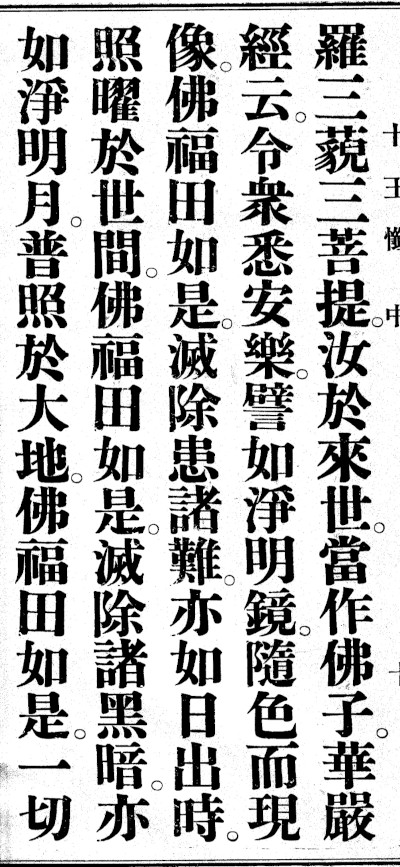 十王懺 中
羅三藐三菩提。汝於來世。當作佛子。華嚴
經云。令衆悉安樂。譬如淨明鏡。隨色而現
像。佛福田如是。滅除患諸難。亦如日出時。
照曜於世間。佛福田如是。滅除諸黑暗。亦
如淨明月。普照於大地。佛福田如是。一切